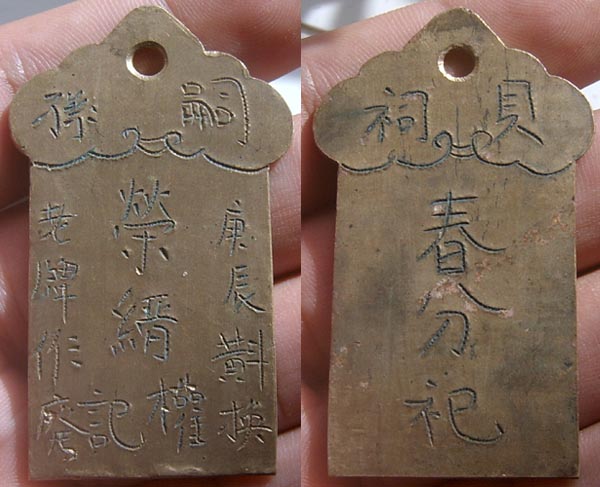 嗣孫
庚辰斢換
榮縉
權記
老牌作廢
貝祠
春分祀